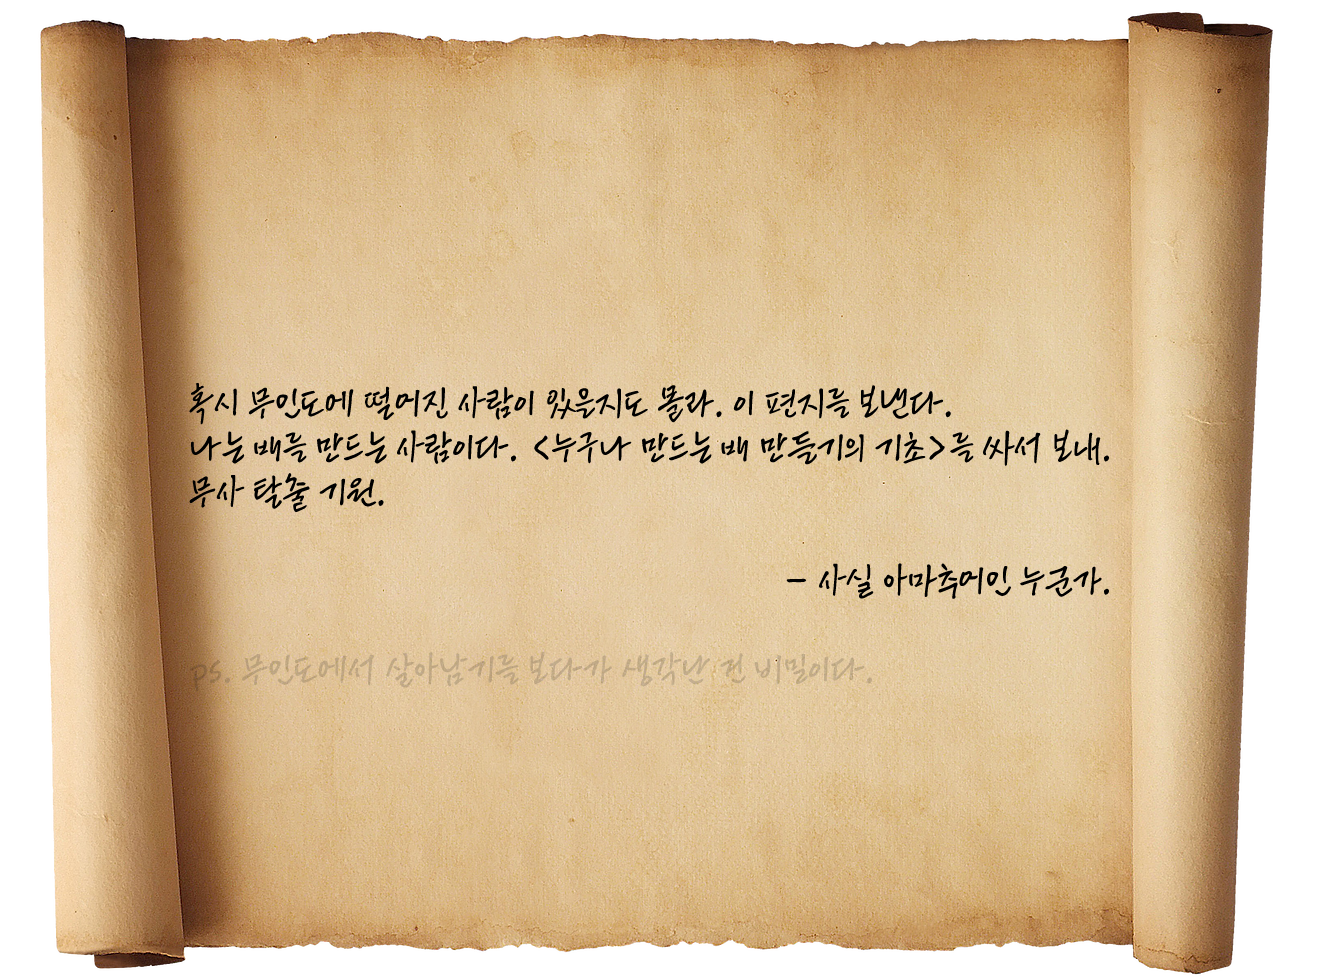 혹시 무인도에 떨어진 사람이 있을지도 몰라. 이 편지를 보낸다.
나는 배를 만드는 사람이다. <누구나 만드는 배 만들기의 기초>를 싸서 보내.
무사 탈출 기원.
- 사실 아마추어인 누군가.
ps. 무인도에서 살아남기를 보다가 생각난 건 비밀이다.